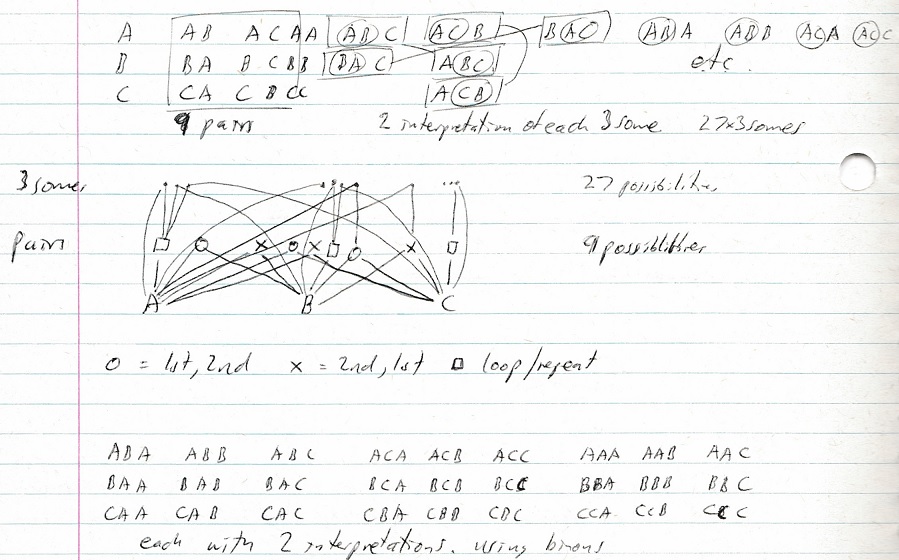 A AB AC AA ABC ACB BAC ABA ABB ACA ACC
B BA BC BB BAC ABC etc.
C CA CB CC ACB
9 pairs 2 interpretation of each 3some 27x3somes
3somes 27 possibilities
pairs 9 possibilities
A B C
o = 1st, 2nd x = 2nd, 1st □ loop/repeat
ABA ABB ABC ACA ACB ACC AAA AAB AAC
BAA BAB BAC BCA BCB BCC BBA BBB BBC
CAA CAB CAC CBA CBB CBC CCA CCB CCC
each with 2 interpretations. using binons